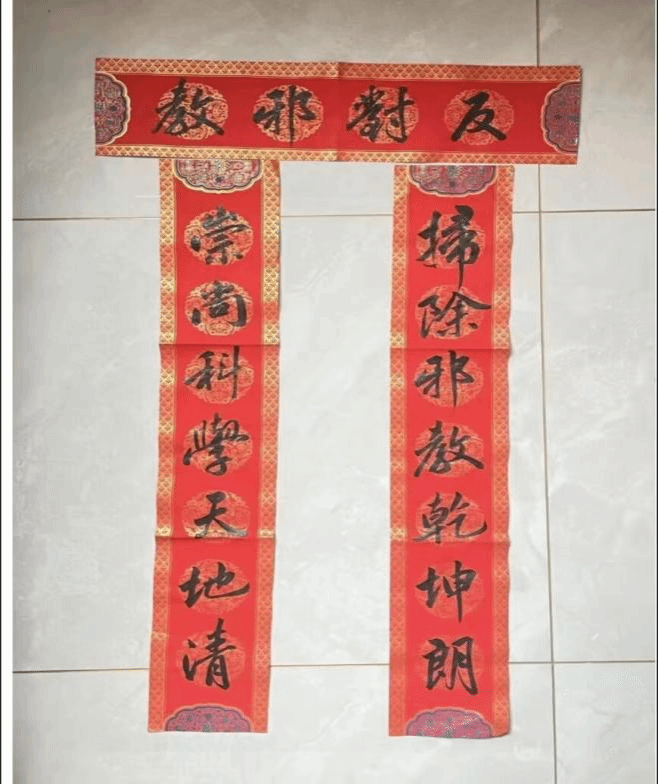 反對邪教
掃除邪教乾坤朗
崇尚科學天地清